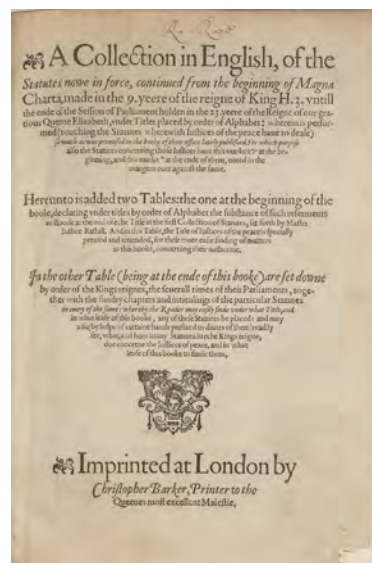 A Collection in English, of the
Statutes nowe in force, continued from the beginning of Magna
Charta, made in the 9. yeere of the reigne of King H. 3. vntill
the ende of the Session of Parliament holden in the 23. yeere of the Reigne of our gra-
tious Queene Elizabeth, vnder Titles placed by order of Alphabet: wherein is perfour-
med (touching the Statutes wherewith Iustices of the peace haue to deale)
so much as was promised in the booke of their office lately published: for which purpose
also the Statutes concerning their Iustices haue this marke at the be-
ginning, and this marke * at the ende of them, noted in the
margent ouer against the same.
Hereunto is added two Tables: the one at the beginning of the
booke, declaring vnder titles by order of Alphabet the substance of such referments
as stoode at the end of the Title in the first Collection of Statutes, set forth by Master
Iustice Rastall. And in this Table, the Title of Iustices of the peace is specially
printed and intended, for their more easie finding of matters
in this booke, concerning their
In the other Table (being at the ende of this booke) are set downe
by order of the Kings reignes, the seuerall times of their Parliaments, toge-
ther with the sundry chapters and intitulings of the particular Statutes
in euery of the same: whereby the Reader may easily finde vnder what Title, and
in what lease of this booke, any of these Statutes be placed: and may
also by helpe of certaine hands prefixed to diuers of them readily
see, what, and how many Statutes in the Kings reigne,
doe concerne the Iustices of peace, and in what
lease of this booke to finde them.
Imprinted at London by
Christopher Barker, Printer to the
Queenes most excellent Maiestie.